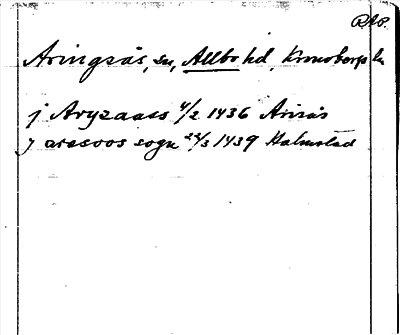 RAP.
Aringsås, sn, Allbo hd, Kronobergs ln
j Aryzaass 4/2 1436 Arisås
j aresoos sogn 22/3 1439 Halmstad